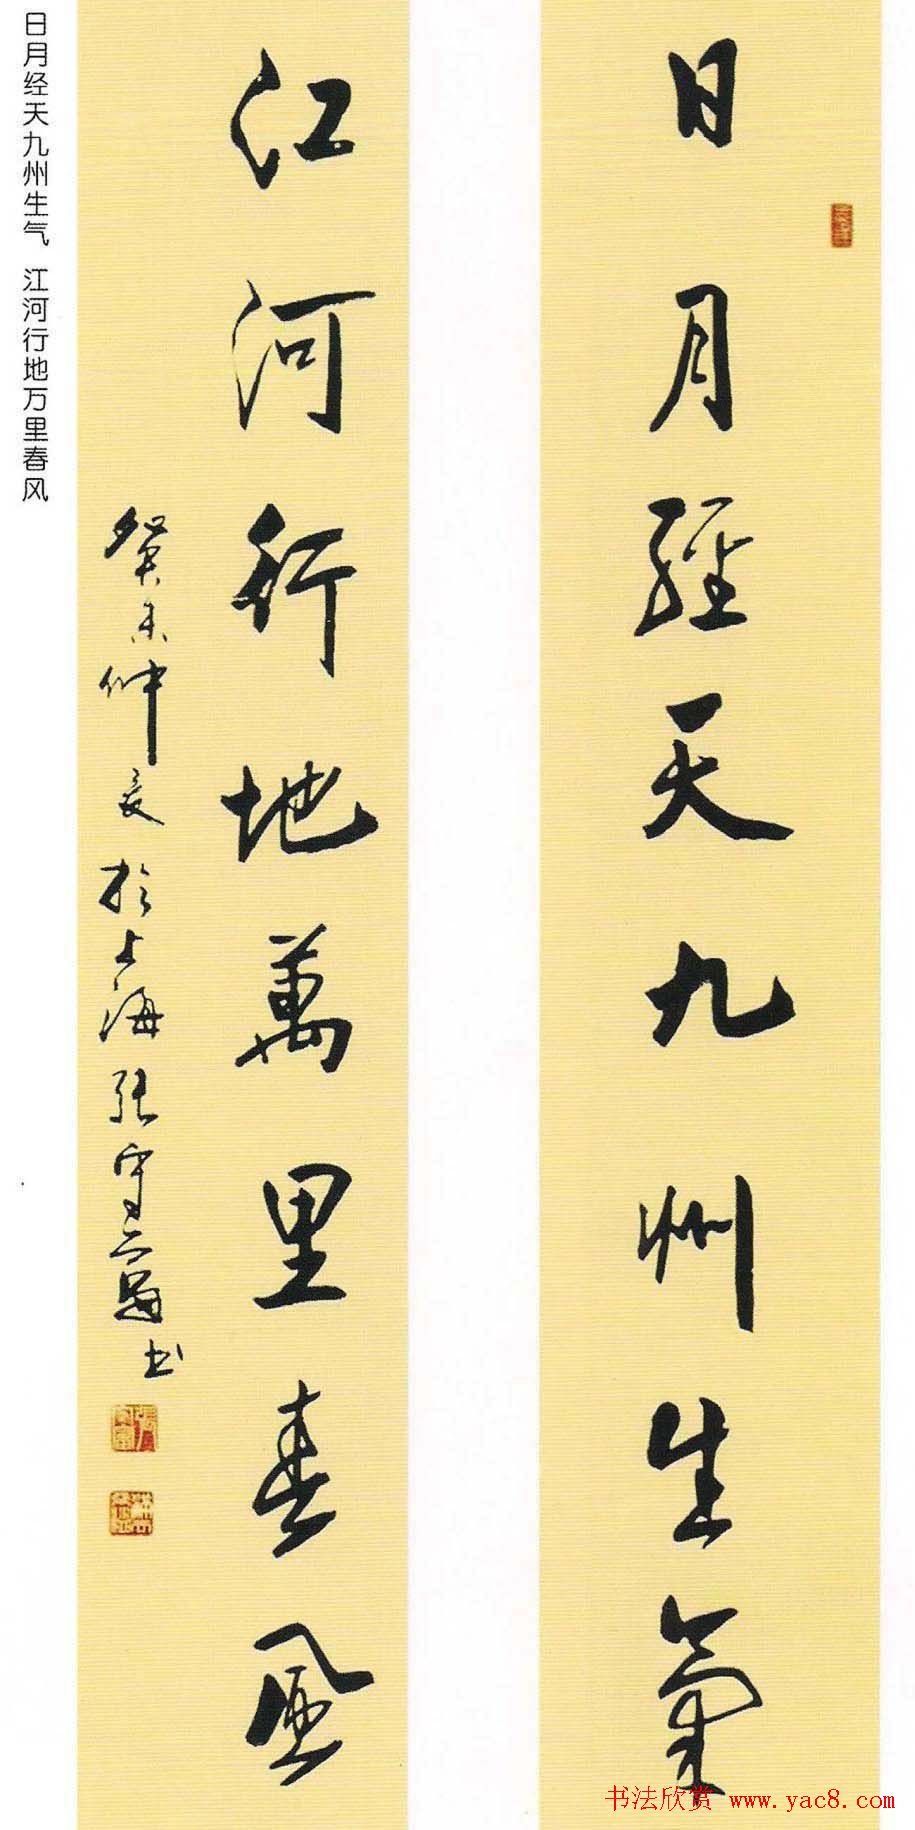 日月經天九州生氣
江河行地萬里春風
癸未仲夏於上海張守富書
日月经天九州生气 江河行地万里春风
书法欣赏 www.yac8.com